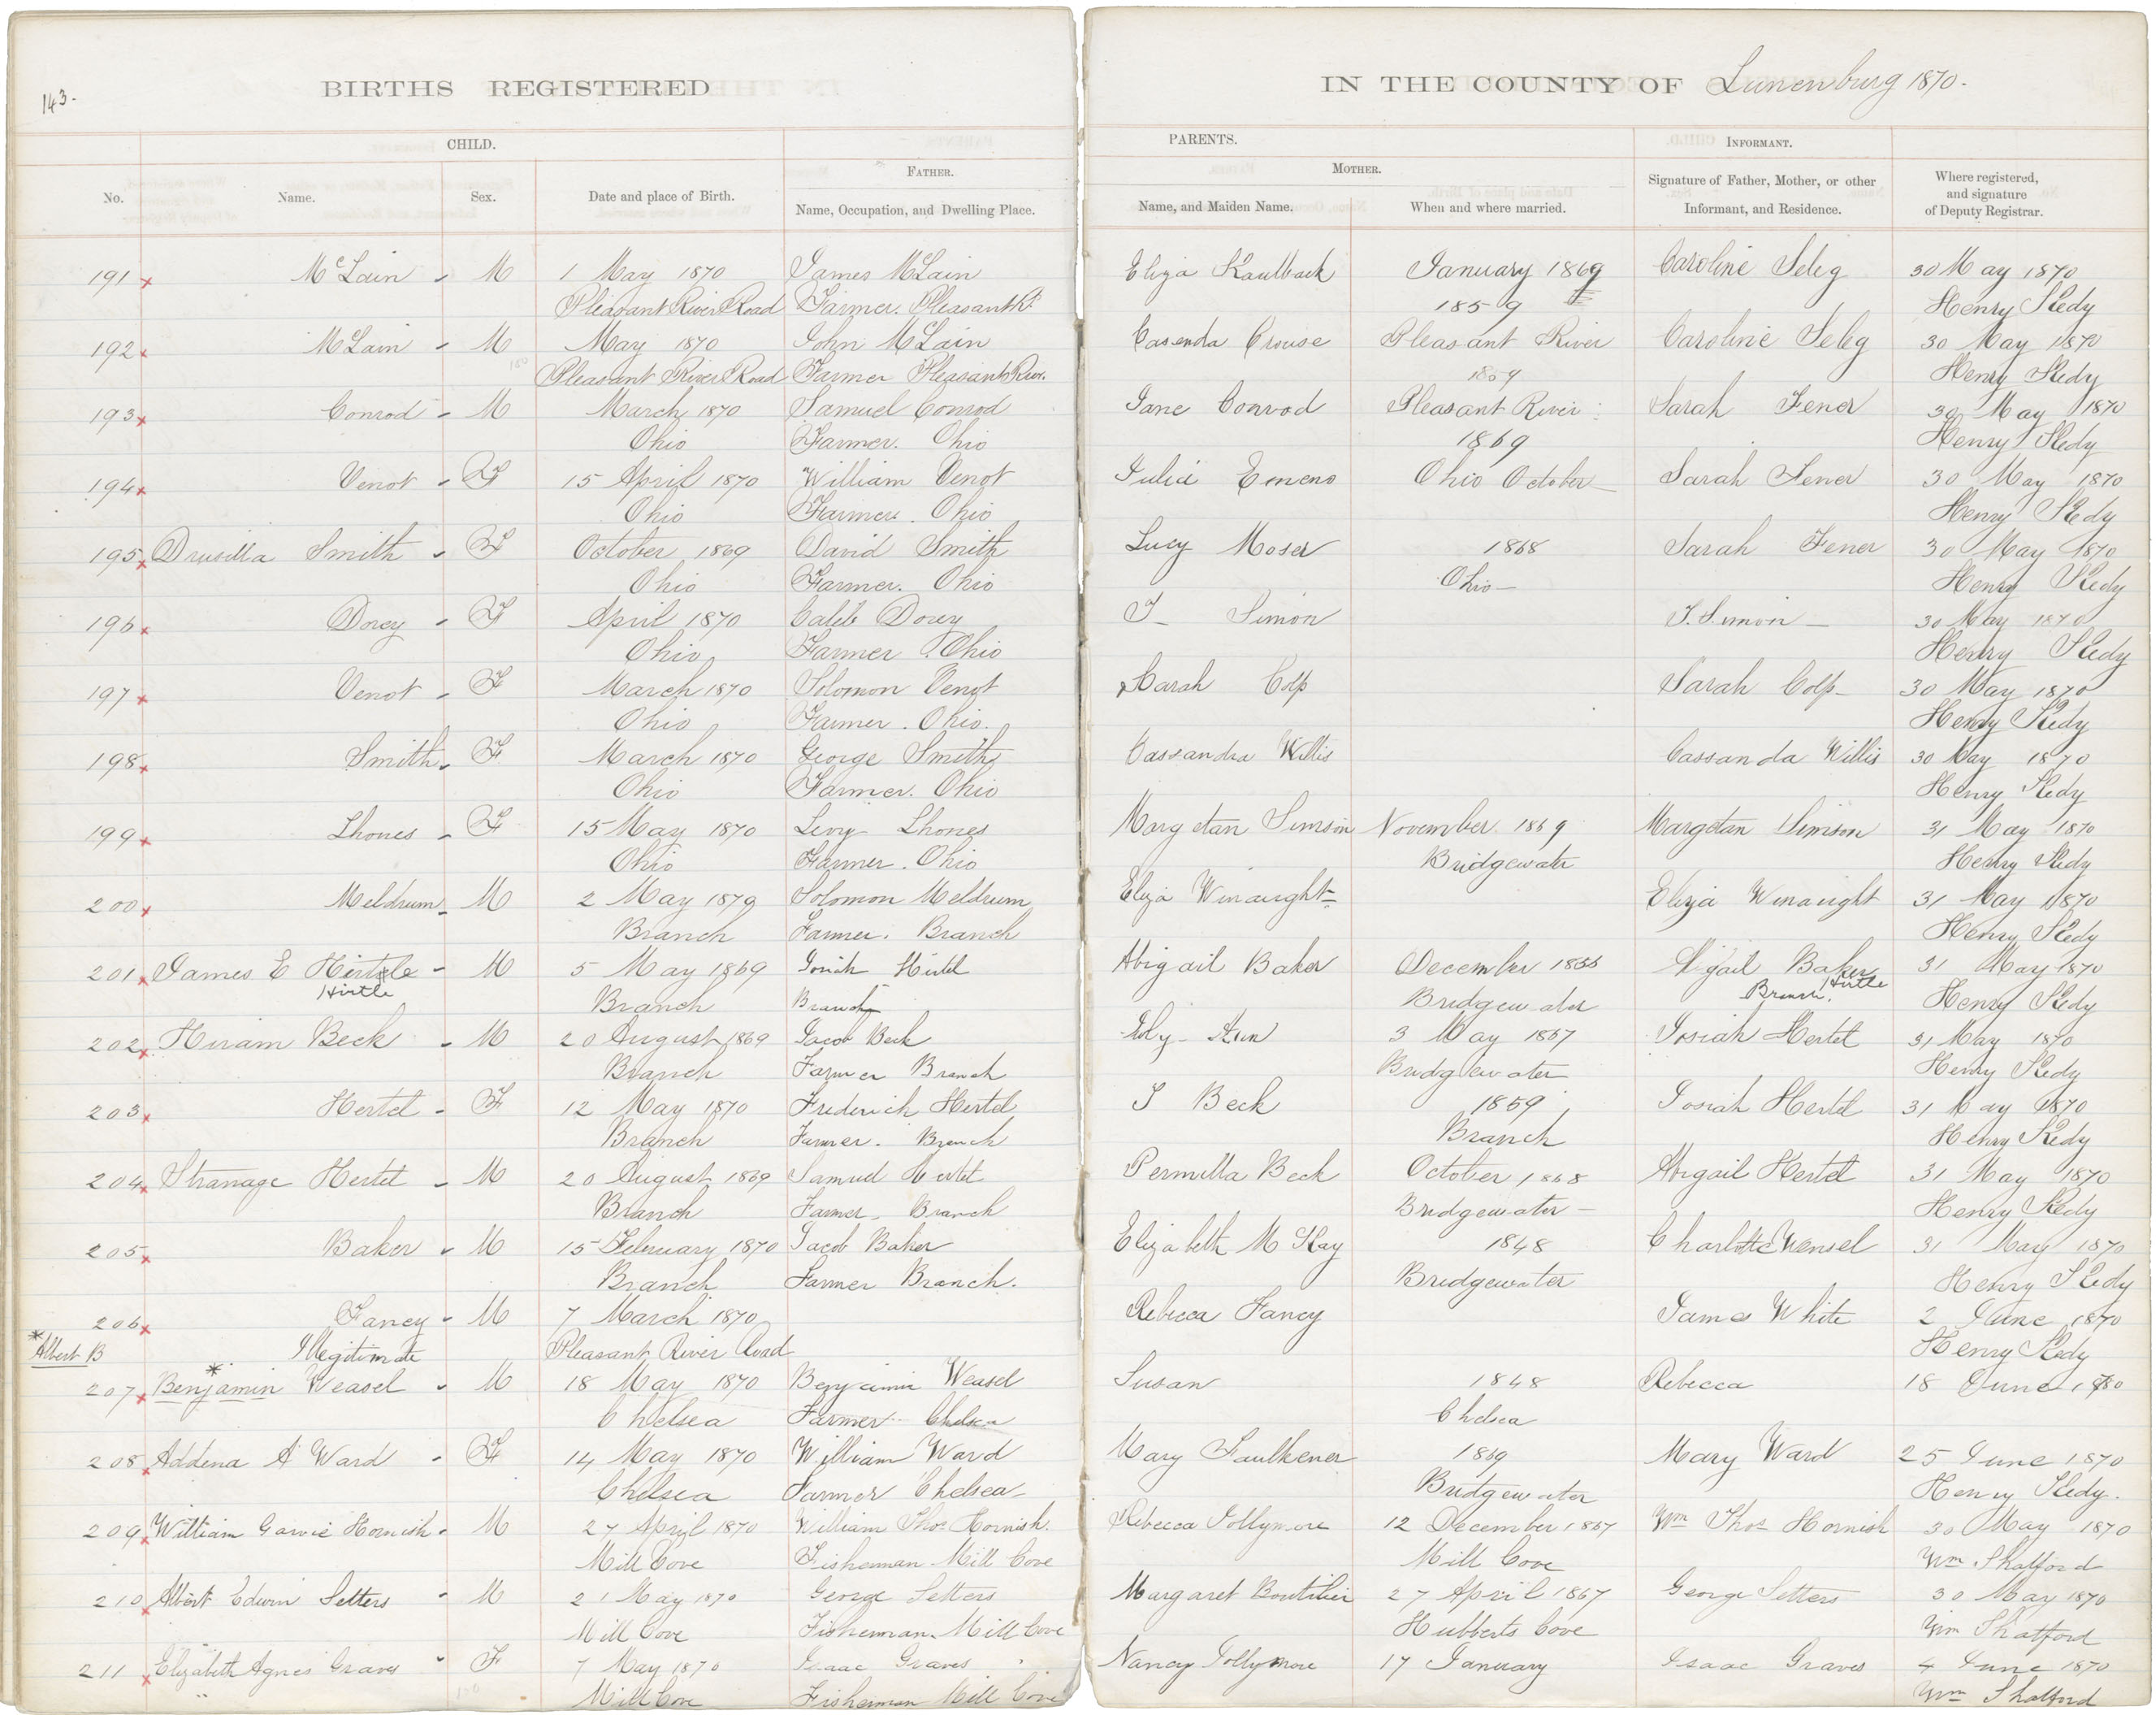 143.
BIRTHS REGISTERED
IN THE COUNTY OF Lunenburg 1870.
CHILD.
PARENTS.
INFORMANT.
FATHER.
MOTHER.
No.
Name.
Sex.
Date and place of Birth.
Name, Occupation, and Dwelling Place.
Name, and Maiden Name.
When and where married.
Signature of Father, Mother, or other Informant, and Residence.
Where registered, and signature of Deputy Registrar.
191 x McLain - M 1 May 1870 James McLain Eliza Kaulback January 1869 Caroline Seleg 30 May 1870
Pleasant River Road Farmer. Pleasant R. 1859 Henry Sledy
192 x McLain - M May 1870 John McLain Casenda Crouse Pleasant River Caroline Seleg 30 May 1870
Pleasant River Road Farmer Pleasant River. 1859 Henry Sledy
193 x Conrod - M March 1870 Samuel Conrod Jane Conrod Pleasant River Sarah Fener 30 May 1870
Ohio Farmer. Ohio 1869 Henry Sledy
194 x Venot - F 15 April 1870 William Venot Julia Emeno Ohio October Sarah Fener 30 May 1870
Ohio Farmer. Ohio Henry Sledy
195 x Drusilla Smith - F October 1869 David Smith Lucy Moser 1868 Sarah Fener 30 May 1870
Ohio Farmer. Ohio Ohio - Henry Sledy
196 x Dorey - F April 1870 Caleb Dorey T - Simon T. Simon - 30 May 1870
Ohio Farmer. Ohio Henry Sledy
197 x Venot - F March 1870 Solomon Venot Sarah Colp Sarah Colp - 30 May 1870
Ohio Farmer. Ohio. Henry Sledy
198 x Smith - F March 1870 George Smith Cassandra Willis Cassanda Willis 30 May 1870
Ohio Farmer. Ohio Henry Sledy
199 x Lhones - F 15 May 1870 Levy Lhones Margetan Simson November 1869 Margetan Simson 31 May 1870
Ohio Farmer. Ohio Bridgewater Henry Sledy
200 x Meldrum - M 2 May 1870 Solomon Meldrum Eliza Winaught - Eliza Winaught 31 May 1870
Branch Farmer. Branch Henry Sledy
201 x James E Hirtle - M 5 May 1869 Josiah Hertel Abigail Baker December 1865 Abigail Baker 31 May 1870
Hirtle Branch Branch Bridgewater Hirtle Branch. Henry Sledy
202 x Hiram Beck - M 20 August 1869 Jacob Beck Ann 3 May 1867 Josiah Hertel 31 May 1870
Branch Farmer Branch Bridgewater Henry Sledy
203 x Hertel - F 12 May 1870 Frederick Hertel S Beck 1859 Josiah Hertel 31 May 1870
Branch Farmer. Branch Branch Henry Sledy
204 x Stranage Hertel - M 20 August 1869 Samuel Hertel Permilla Beck October 1868 Abigail Hertel 31 May 1870
Branch Farmer. Branch Bridgewater - Henry Sledy
205 x Baker - M 15 February 1870 Jacob Baker Elizabeth McKay 1848 Charlotte Wensel 31 May 1870
Branch Farmer Branch. Bridgewater Henry Sledy
206 x Fancy - M 7 March 1870 Rebecca Fancy James White 2 June 1870
Illegitimate Pleasant River Road Henry Sledy
* Albert B
207 x Benjamin * Weasel - M 18 May 1870 Benjamin Weasel Susan 1848 Rebecca 18 June 1870
Chelsea Farmer Chelsea Chelsea
208 x Addena A Ward - F 14 May 1870 William Ward Mary Faulkener 1869 Mary Ward 25 June 1870
Chelsea Farmer Chelsea - Bridgewater Henry Sledy.
209 x William Garvie Hornish - M 27 April 1870 William Thos. Hornish. Rebecca Jollymore 12 December 1867 Wm Thos Hornish 30 May 1870
Mill Cove Fisherman Mill Cove Mill Cove Wm. Shatford
210 x Albert Edwin Setters - M 21 May 1870 George Setters Margaret Boutilier 27 April 1867 George Setters 30 May 1870
Mill Cove Fisherman. Mill Cove Hubberts Cove Wm Shatford
211 x Elizabeth Agnes Graves - F 7 May 1870 Isaac Graves Nancy Jollymore 17 January Isaac Graves 4 June 1870
Mill Cove Fisherman Mill Cove Wm Shatford